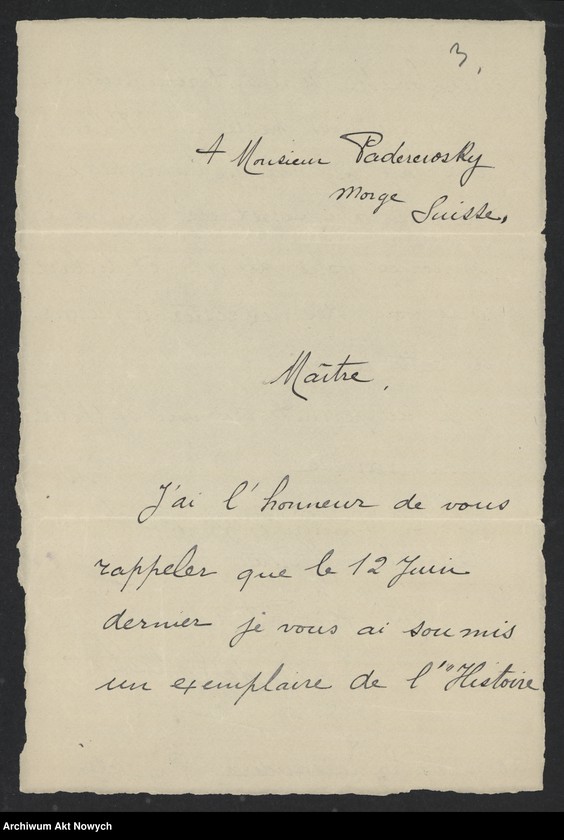 3,
A Monsieur Paderewsky
Morge
Suisse,
Maître,
J'ai l'honneur de vous
rappeler que le 12 Juin
dernier je vous ai soumis
un exemplaire de l'"Histoire
Archiwum Akt Nowych